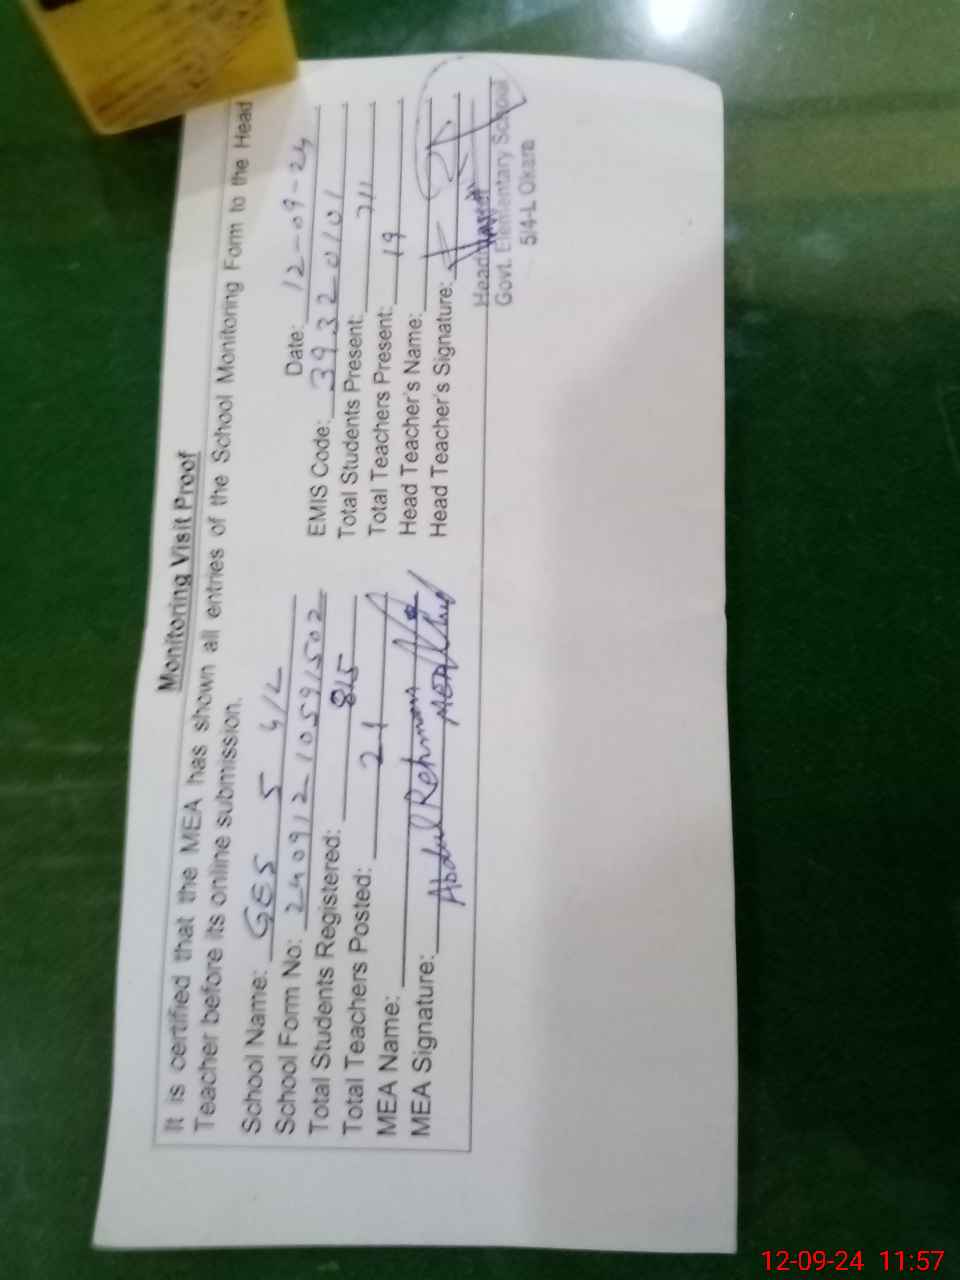 Monitoring Visit Proof
It is certified that the MEA has shown all entries of the School Monitoring Form to the Head
Teacher before its online submission.
Date: 12-09-24
School Name: GES 5 4/L
EMIS Code: 39320101
School Form No: 240912-10591502
Total Students Present: 711
Total Students Registered: 815
Total Teachers Present: 19
Total Teachers Posted: 21
Head Teacher's Name:
MEA Name: Abdul Rehman
Head Teacher's Signature:
MEA Signature:
Headmaster
Govt. Elementary School
5/4-L Okara
12-09-24 11:57